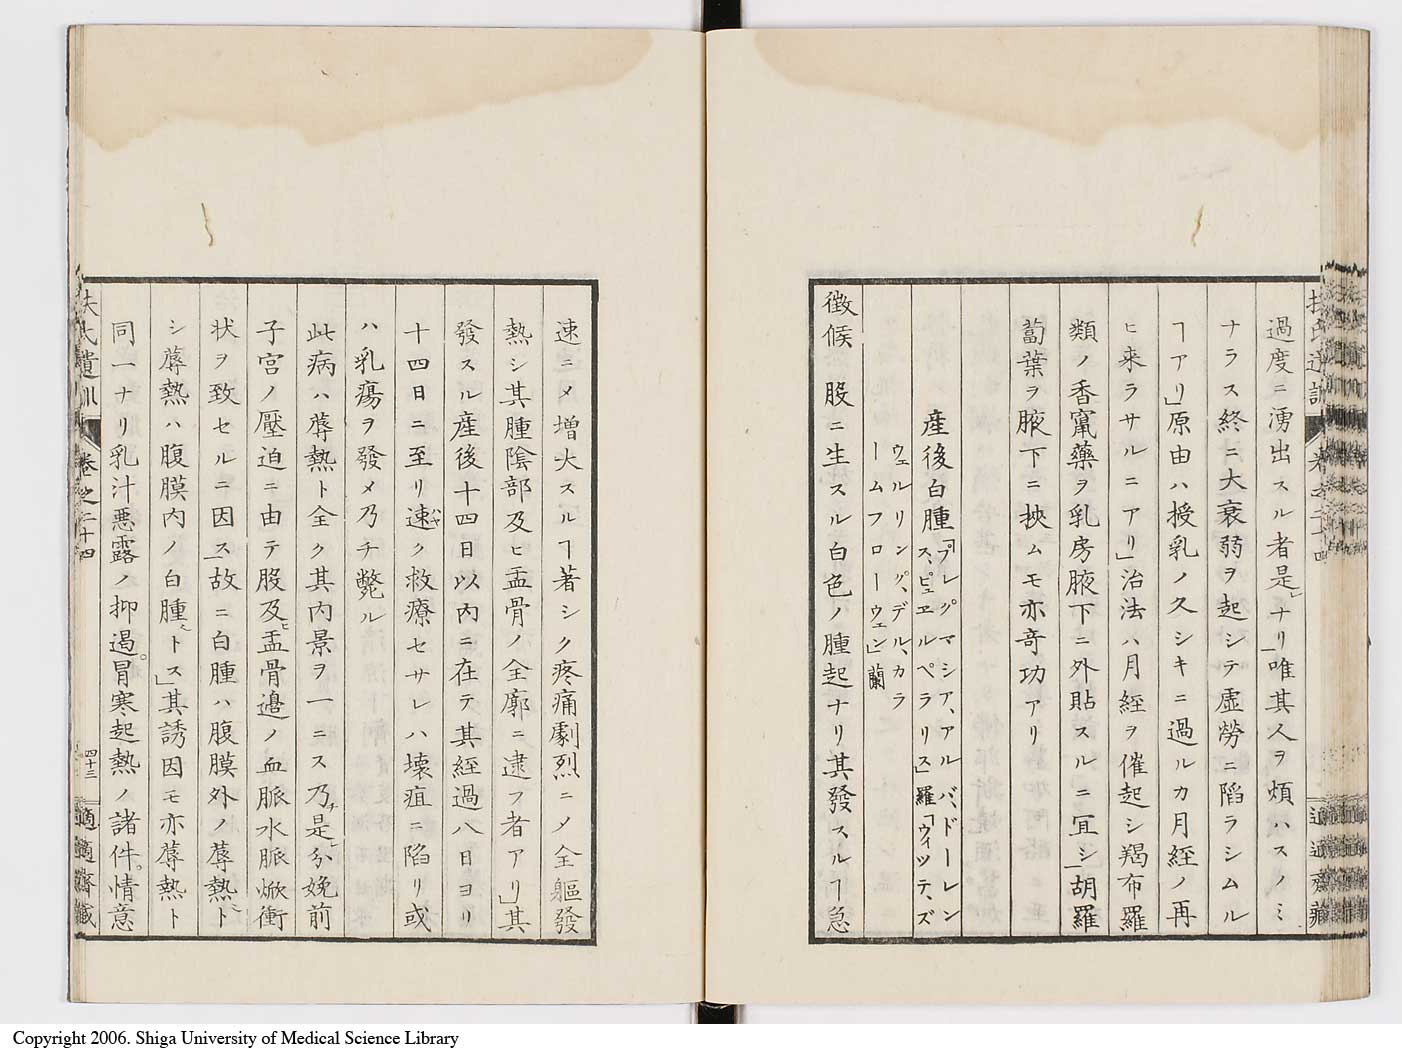 過度ニ湧出スル者是ナリ」唯其人ヲ煩ハスノミ
ナラス終ニ大衰弱ヲ起シテ虚労ニ陷ラシムル
ヿアリ」原由ハ授乳ノ久シキニ過ルカ月経ノ再
ヒ来ラサルニアリ」治法ハ月經ヲ催起シ羯布羅
類ノ香竄藥ヲ乳房腋下ニ外貼スルニ冝シ」胡羅
蔔葉ヲ腋下ニ挾ムモ亦奇功アリ
産後白腫「プレグマシア、アルバ、ドーレン
ス、ピュエルペラリス」羅「ウィッテ、ズ
ウェルリング、デル、カラ
ームフローウェン」蘭
徴候 股ニ生スル白色ノ腫起ナリ其發スルヿ急
扶氏遺訓 巻之二十四 四十三 適適齋藏
速ニメ増大スルヿ著シク疼痛劇烈ニメ全軀發
熱シ其腫陰部及ヒ盂骨ノ全廓ニ逮フ者アリ」其
發スル産後十四日以内ニ在テ其経過八日ヨリ
十四日ニ至リ速ハヤク救療セサレハ壊疽ニ陷リ或
ハ乳瘍ヲ發メ乃チ斃ル
此病ハ蓐熱ト全ク其内景ヲ一ニス乃チ是レ分娩前
子宮ノ壓迫ニ由テ股及ヒ盂骨邉ノ血脈水脈焮衝
状ヲ致セルニ因ス」故ニ白腫ハ腹膜外ノ蓐熱ト
シ蓐熱ハ腹膜内ノ白腫トス」其誘因モ亦蓐熱ト
同一ナリ乳汁悪露ノ抑遏。冒寒起熱ノ諸件。情意
扶氏遺訓 巻之二十四 四十三 適適齋藏